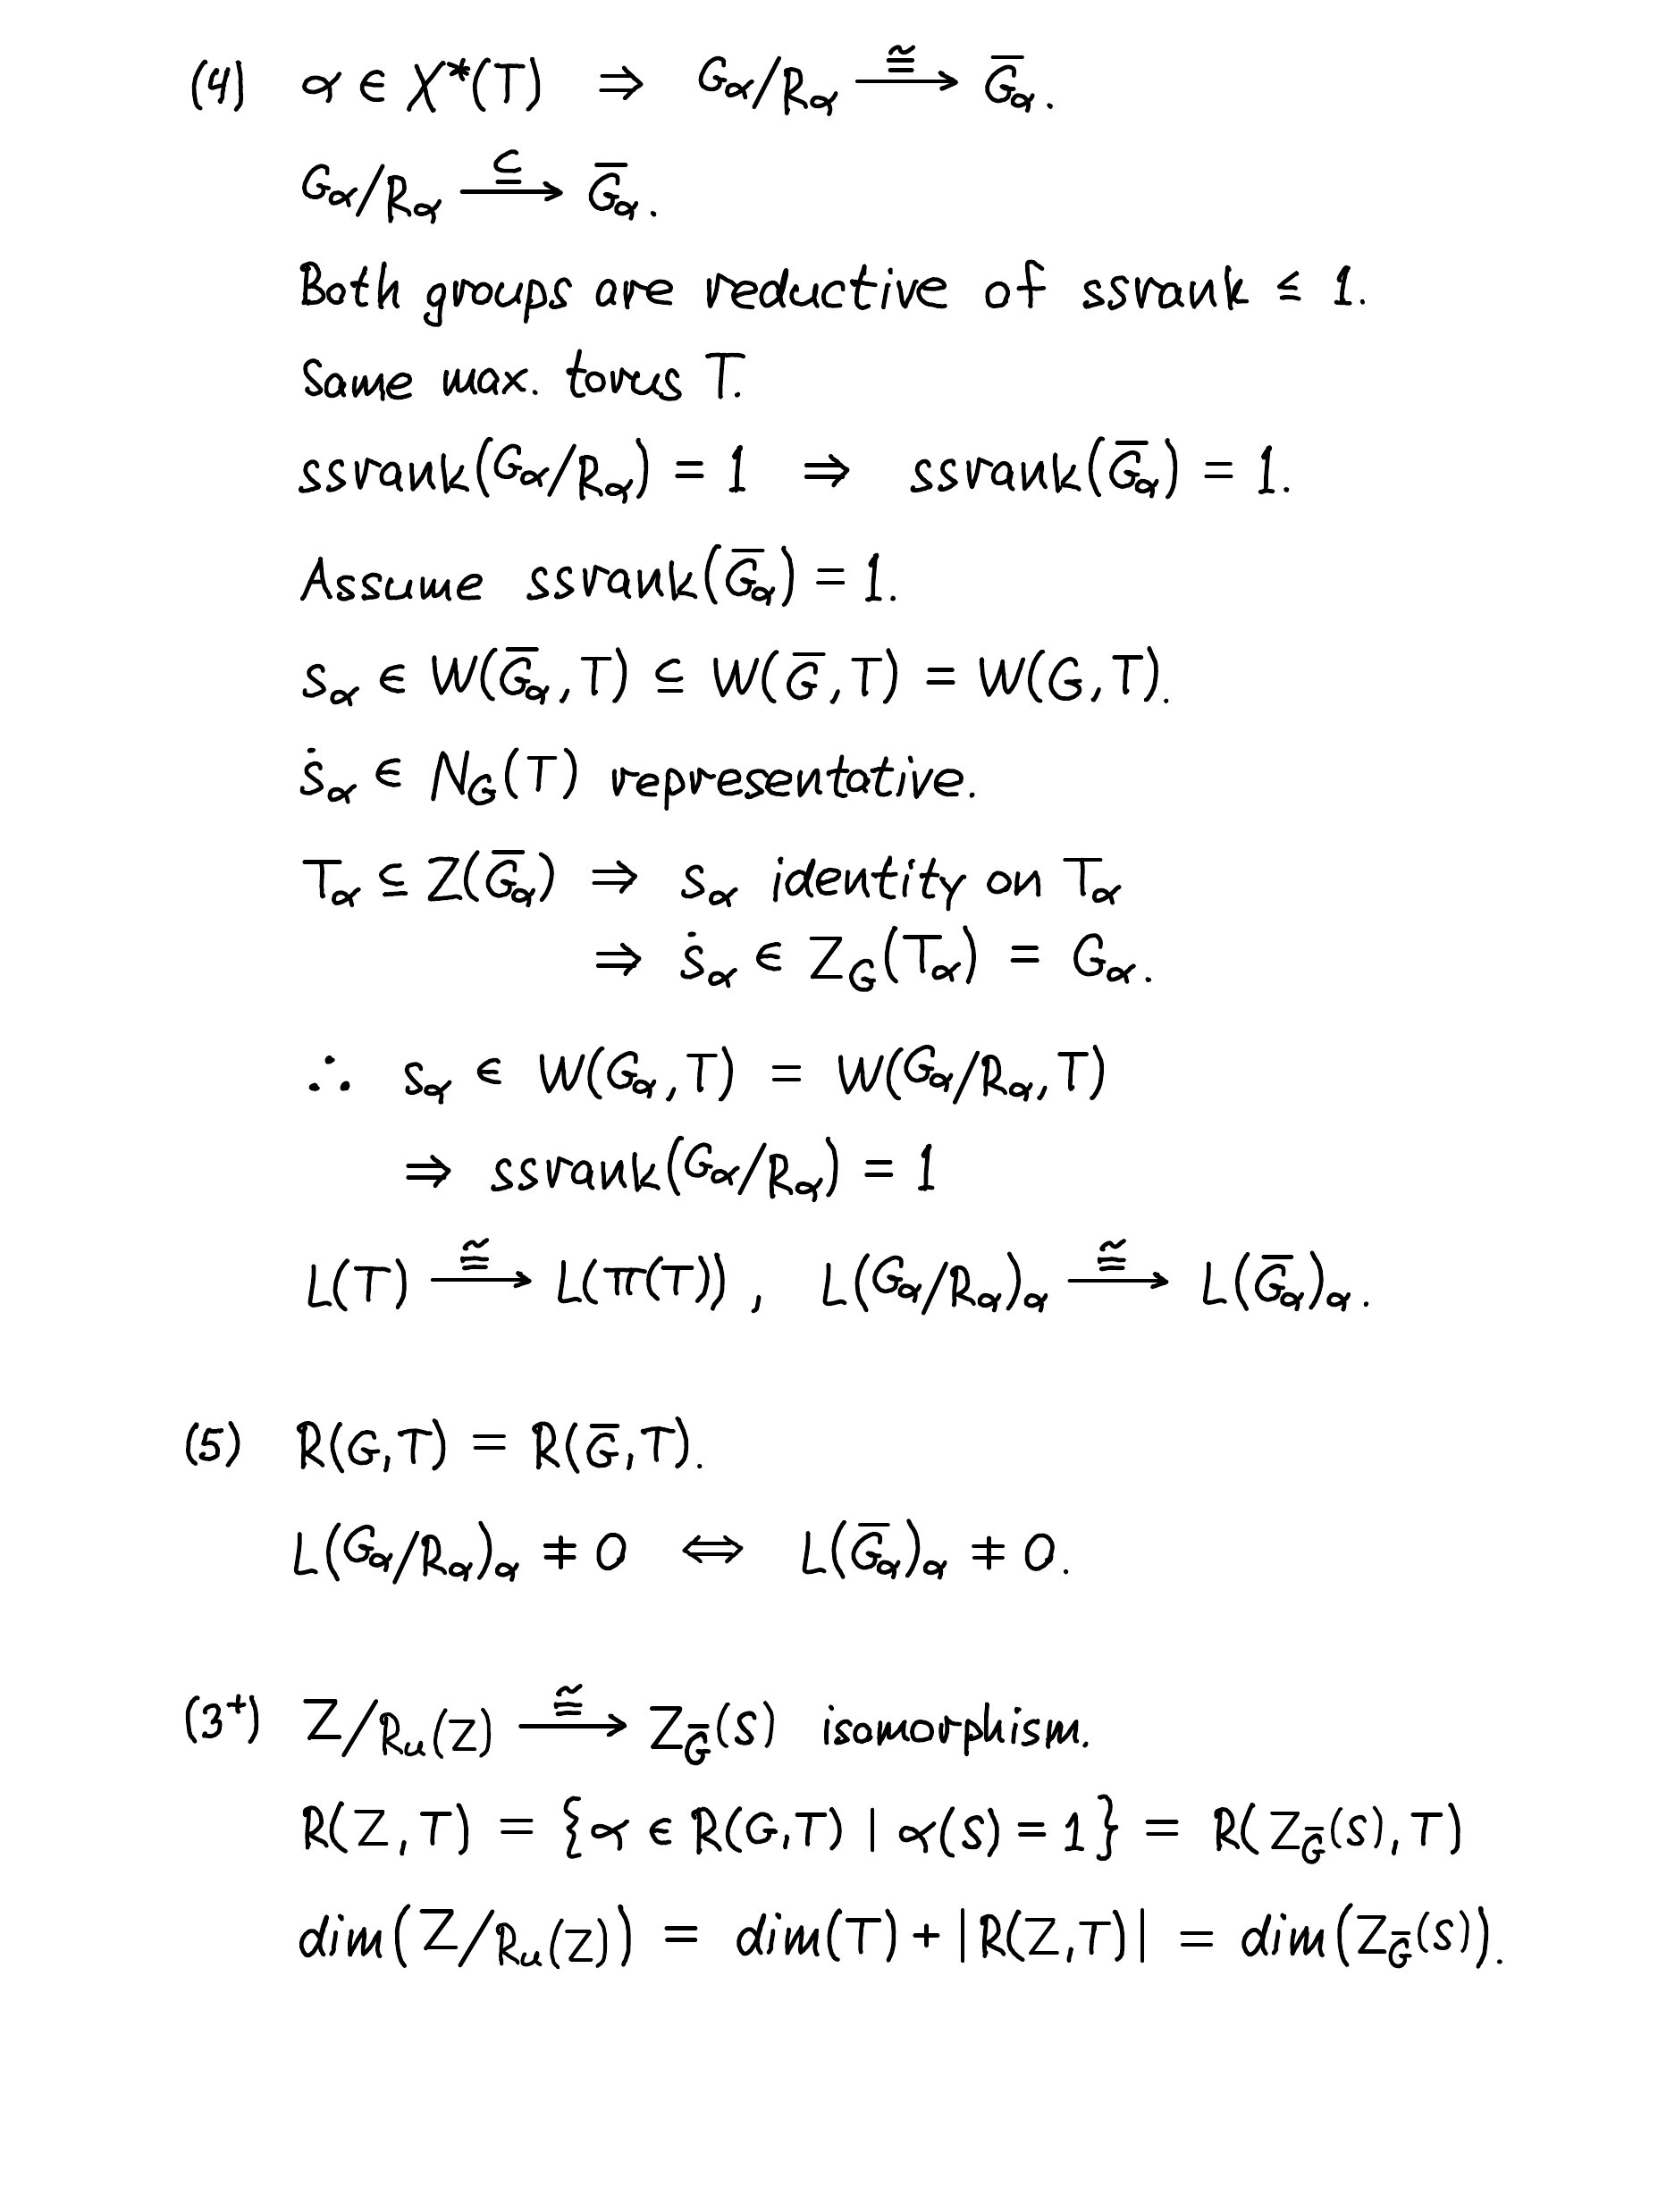 (4) α ∈ X*(T) ⇒ G_α/R_α ≅→ G̅_α.
G_α/R_α ⊆→ G̅_α.
Both groups are reductive of ssrank ≤ 1.
Same max. torus T.
ssrank(G_α/R_α) = 1 ⇒ ssrank(G̅_α) = 1.
Assume ssrank(G̅_α) = 1.
s_α ∈ W(G̅_α, T) ⊆ W(G̅, T) = W(G, T).
ṡ_α ∈ N_G(T) representative.
T_α ⊆ Z(G̅_α) ⇒ s_α identity on T_α
⇒ ṡ_α ∈ Z_G(T_α) = G_α.
∴ s_α ∈ W(G_α, T) = W(G_α/R_α, T)
⇒ ssrank(G_α/R_α) = 1
L(T) ≅→ L(π(T)), L(G_α/R_α)_α ≅→ L(G̅_α)_α.
(5) R(G,T) = R(G̅,T).
L(G_α/R_α)_α ≠ 0 ⇔ L(G̅_α)_α ≠ 0.
(3⁺) Z/R_u(Z) ≅→ Z_G̅(S) isomorphism.
R(Z,T) = {α ∈ R(G,T) | α(S) = 1} = R(Z_G̅(S), T)
dim(Z/R_u(Z)) = dim(T) + |R(Z,T)| = dim(Z_G̅(S)).